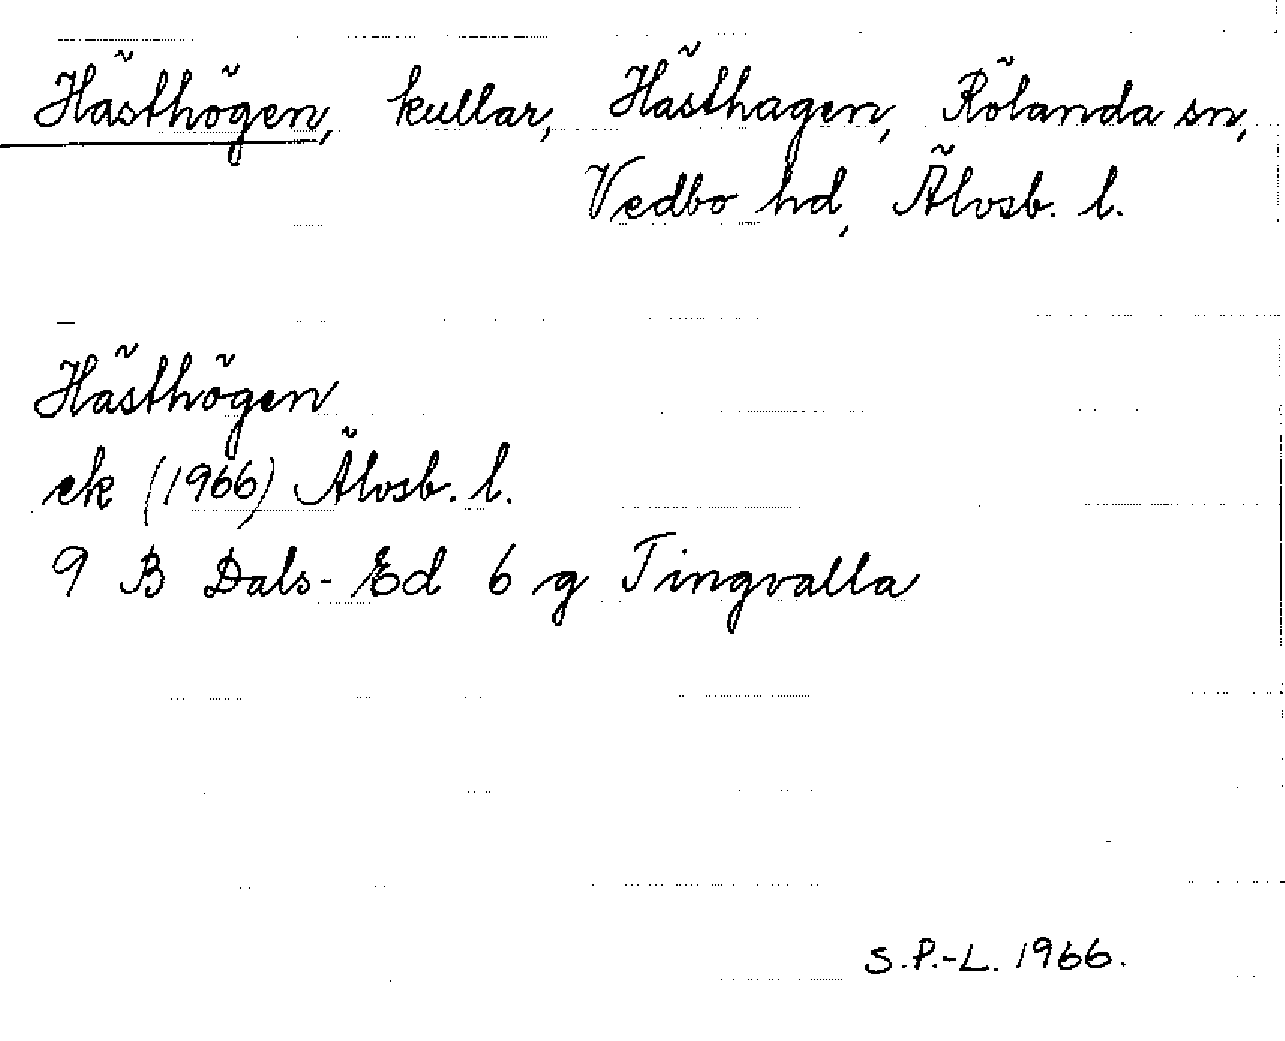 Hästhögen, kullar, Hästhagen, Rölanda sn,
Vedbo hd, Älvsb. l.
Hästhögen
ek (1966) Älvsb. l.
9 B Dals-Ed 6 g Tingvalla
S.P.-L. 1966.